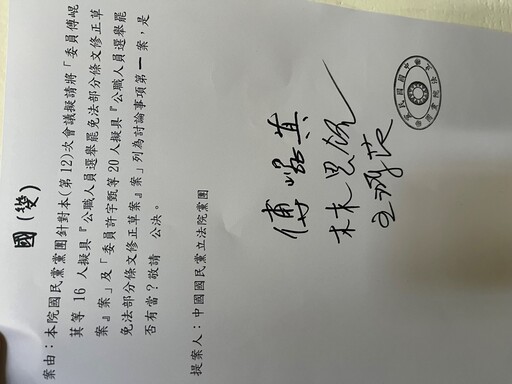 國(變)
案由：本院國民黨黨團針對本(第12)次會議擬請將「委員傅崐
萁等 16 人擬具『公職人員選舉罷免法部分條文修正草
案』案」及「委員許宇甄等20人擬具『公職人員選舉罷
免法部分條文修正草案』案」列為討論事項第一案，是
否有當？敬請 公決。
提案人：中國國民黨立法院黨團
傅崐萁
林思銘
王鴻薇